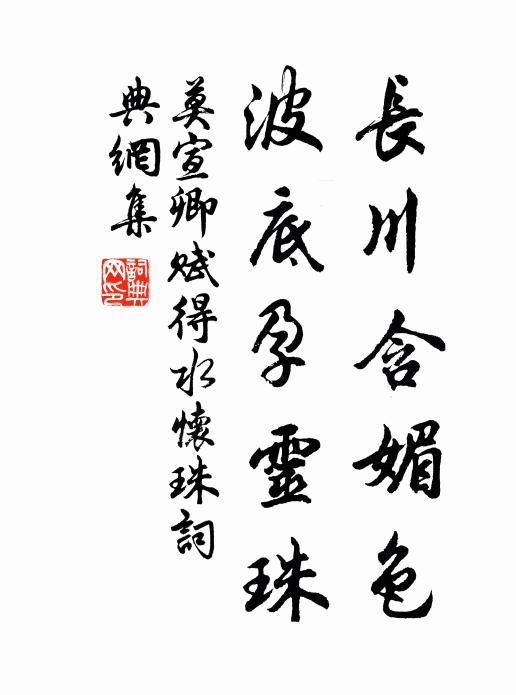 長川含媚色
波底孕靈珠
莫宣卿賦得水懷珠詞
典網集
詞典網印